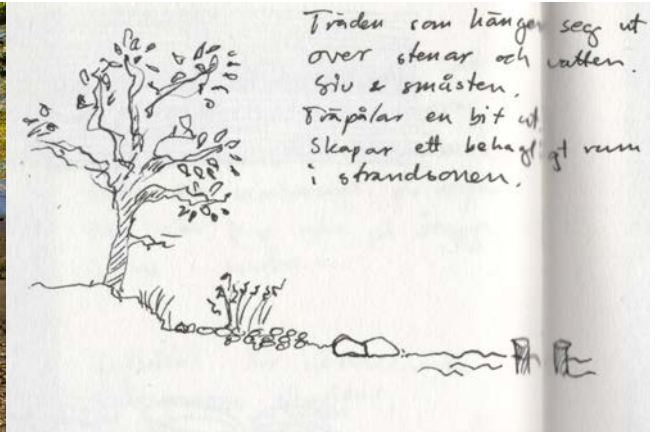 Träden som hänger seg ut
över stenar och vatten.
Siv & småsten.
Träpålar en bit ut.
Skapar ett behagligt rum
i strandsonen.